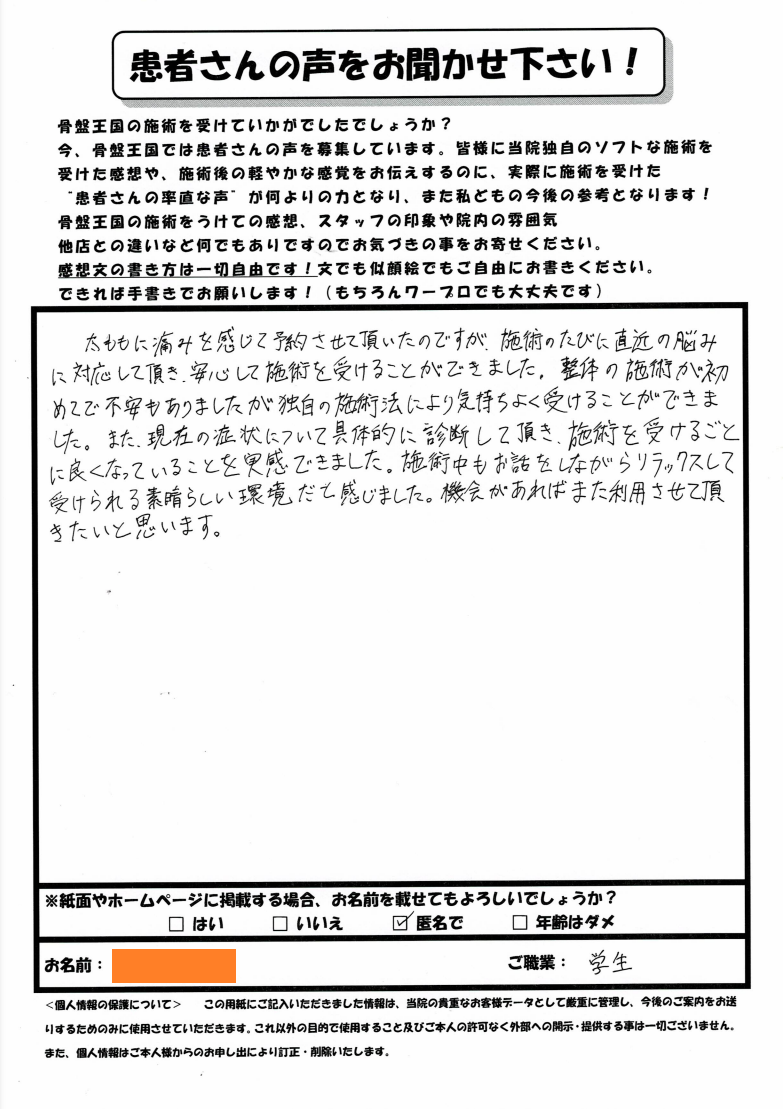 患者さんの声をお聞かせ下さい！
骨盤王国の施術を受けていかがでしたでしょうか？
今、骨盤王国では患者さんの声を募集しています。皆様に当院独自のソフトな施術を
受けた感想や、施術後の軽やかな感覚をお伝えするのに、実際に施術を受けた
“患者さんの率直な声”が何よりの力となり、また私どもの今後の参考となります！
骨盤王国の施術をうけての感想、スタッフの印象や院内の雰囲気
他店との違いなど何でもありですのでお気づきの事をお寄せください。
感想文の書き方は一切自由です！文でも似顔絵でもご自由にお書きください。
できれば手書きでお願いします！（もちろんワープロでも大丈夫です）
太ももに痛みを感じて予約させて頂いたのですが、施術のたびに直近の脳み
に対応して頂き、安心して施術を受けることができました。整体の施術が初
めてで不安もありましたが独自の施術法により気持ちよく受けることができま
した。また、現在の症状について具体的に診断して頂き、施術を受けるごと
に良くなっていることを実感できました。施術中もお話をしながらリラックスして
受けられる素晴らしい環境だと感じました。機会があればまた利用させて頂
きたいと思います。
※紙面やホームページに掲載する場合、お名前を載せてもよろしいでしょうか？
□ はい □ いいえ ☑ 匿名で □ 年齢はダメ
お名前： ご職業： 学生
＜個人情報の保護について＞ この用紙にご記入いただきました情報は、当院の貴重なお客様データとして厳重に管理し、今後のご案内をお送
りするためのみに使用させていただきます。これ以外の目的で使用すること及びご本人の許可なく外部への開示・提供する事は一切ございません。
また、個人情報はご本人様からのお申し出により訂正・削除いたします。